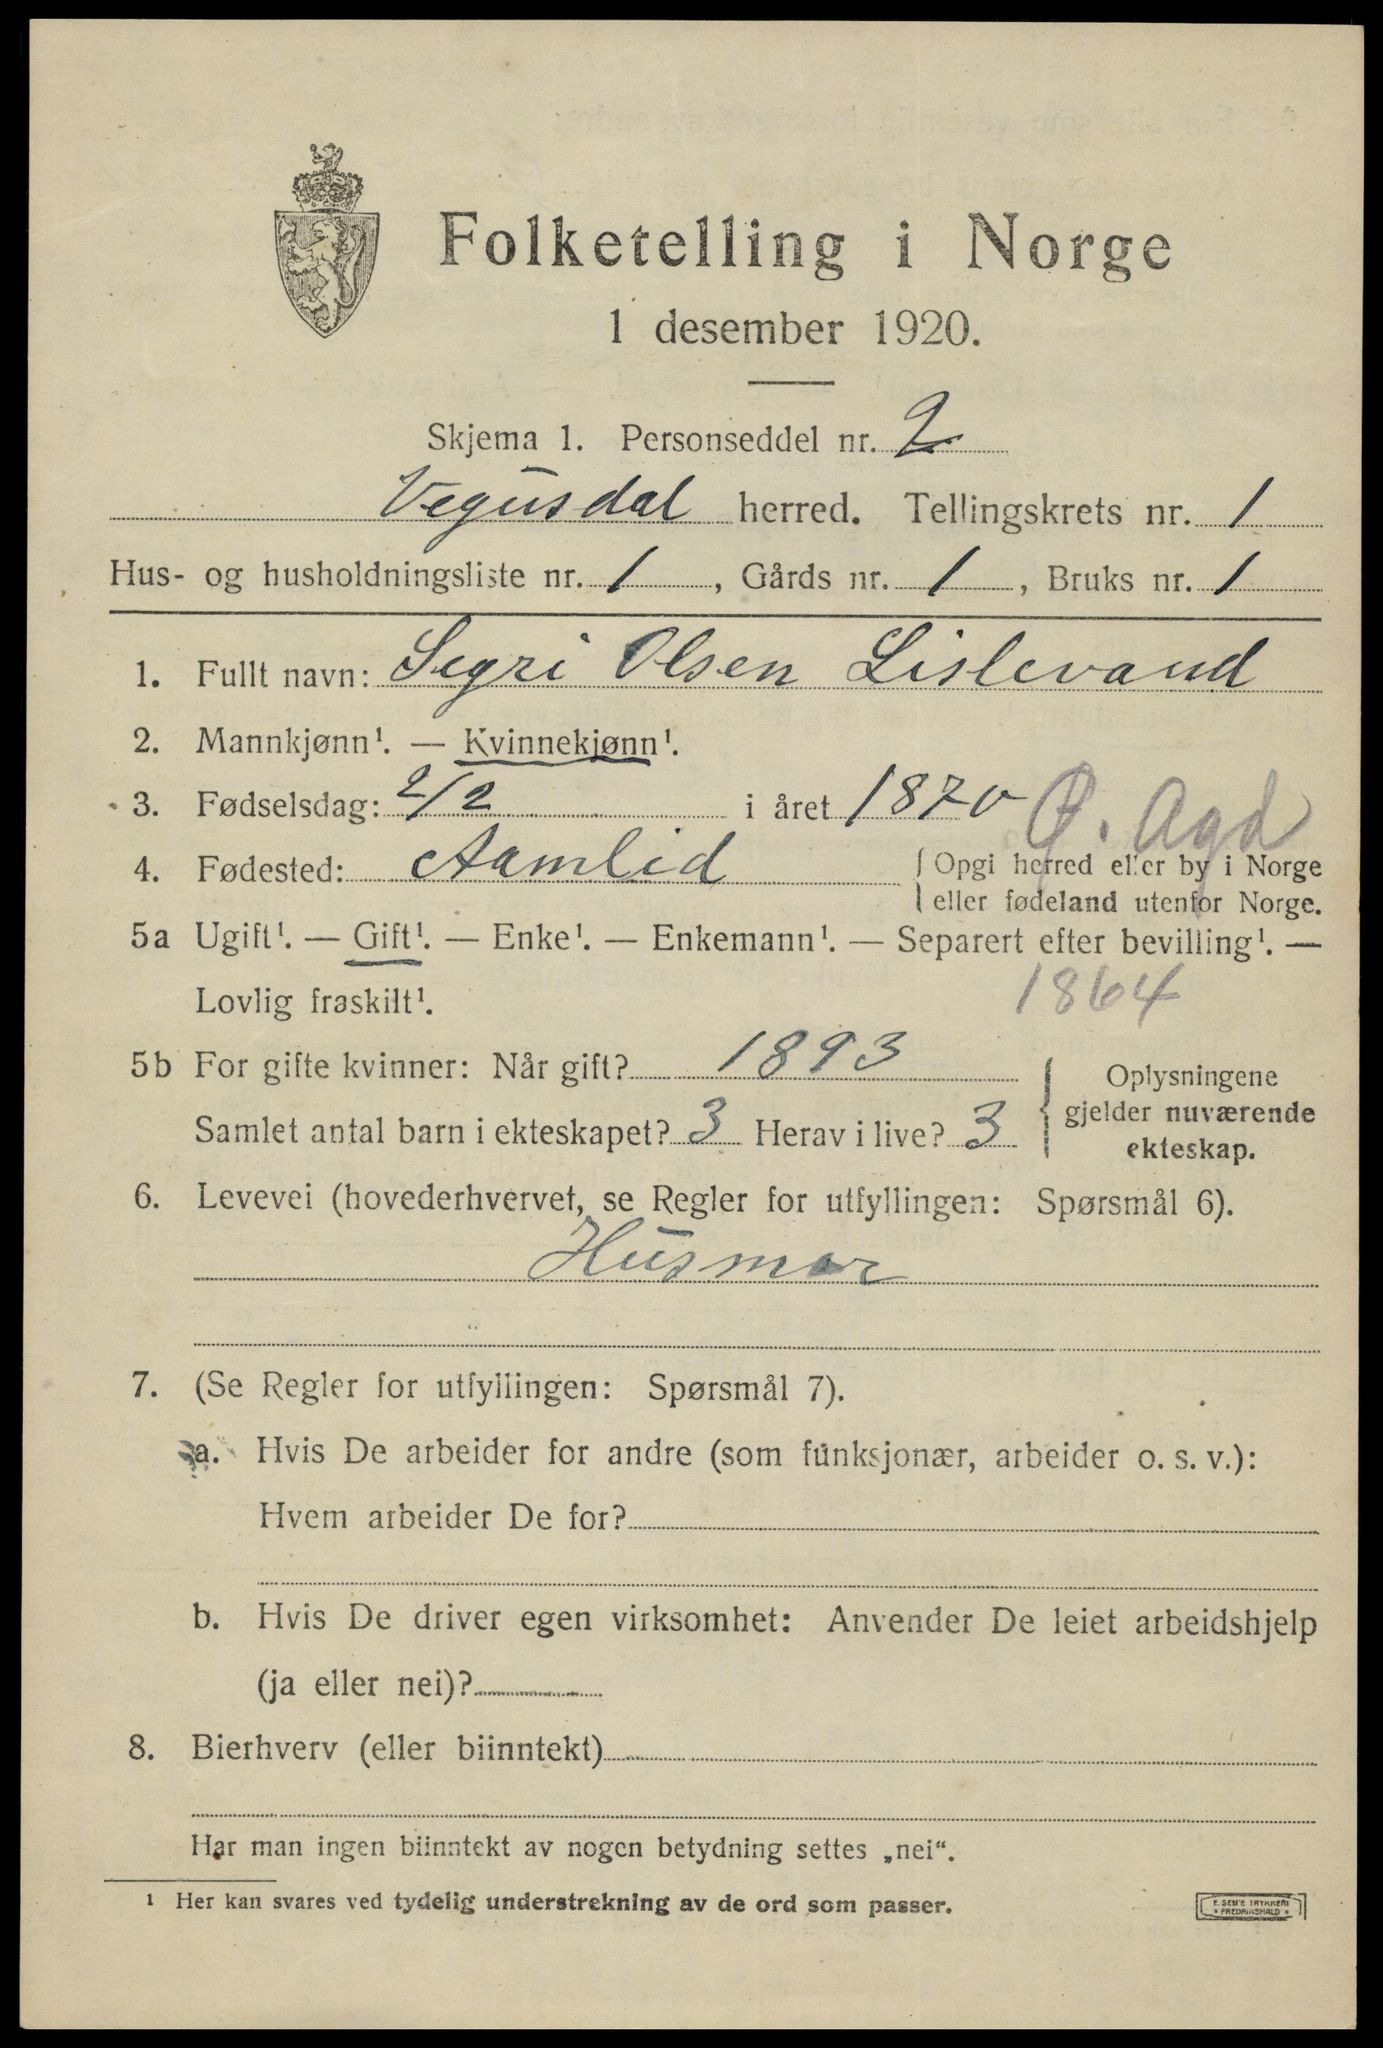 Folketelling i Norge
1 desember 1920.
Skjema 1. Personseddel nr. 2
Vegusdal herred. Tellingskrets nr. 1
Hus- og husholdningsliste nr. 1, Gårds nr. 1, Bruks nr. 1
1. Fullt navn: Segri Olsen Lislevand
2. Mannkjønn¹. — Kvinnekjønn¹.
3. Fødselsdag: 2/2 i året 1870
Ø. Agd
4. Fødested: Aamlid { Opgi herred eller by i Norge
eller fødeland utenfor Norge.
5a Ugift¹. — Gift¹. — Enke¹. — Enkemann¹. — Separert efter bevilling¹. —
Lovlig fraskilt¹. 1864
5b For gifte kvinner: Når gift? 1893
Samlet antal barn i ekteskapet? 3 Herav i live? 3
Oplysningene
gjelder nuværende
ekteskap.
6. Levevei (hovederhvervet, se Regler for utfyllingen: Spørsmål 6).
Husmor
7. (Se Regler for utfyllingen: Spørsmål 7).
a. Hvis De arbeider for andre (som funksjonær, arbeider o. s. v.):
Hvem arbeider De for?
b. Hvis De driver egen virksomhet: Anvender De leiet arbeidshjelp
(ja eller nei)?
8. Bierhverv (eller biinntekt)
Har man ingen biinntekt av nogen betydning settes „nei“.
¹ Her kan svares ved tydelig understrekning av de ord som passer.
E. SEM'S TRYKKERI
* FREDRIKSHALD *